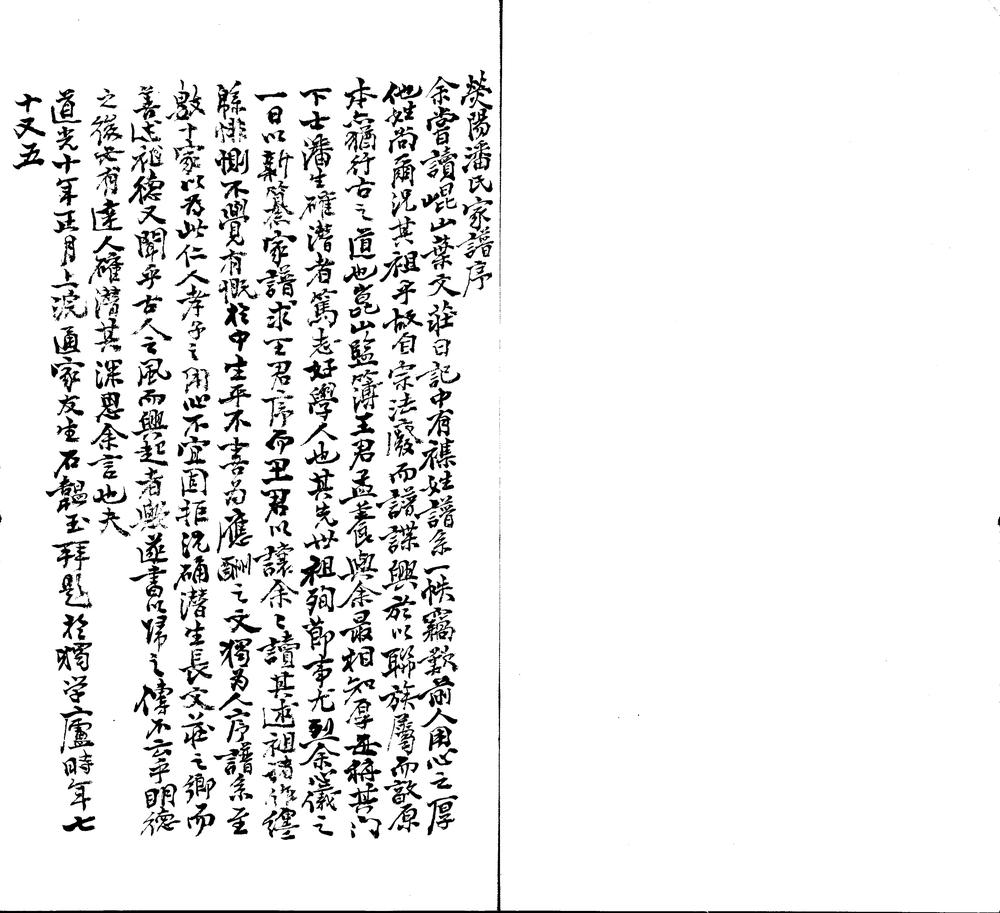 熒陽潘氏家譜序
余嘗讀崐山葉文莊日記中有襍姓譜系一帙竊歎前人用心之厚
他姓尚爾況其祖乎故自宗法廢而譜諜興於以聯族屬而敦原
本亦猶行古之道也崑山監簿王君孟養與余最相知厚每稱其門
下士潘生確潛者篤志好學人也其先世祖殉節事尤烈余心儀之
一日以新纂家譜求王君序而王君以讓余〻讀其述祖諸作纏
緜悱惻不覺有慨於中生平不喜為應酬之文獨為人序譜系至
數十家以為此仁人孝子之用心不宜固拒況确潛生長文莊之鄉而
善述祖德又聞乎古人之風而興起者歟遂書以歸之傳不云乎明德
之後必有達人確潛其深思余言也夫
道光十年正月上浣通家友生石韞玉拜題於獨学廬時年七
十又五